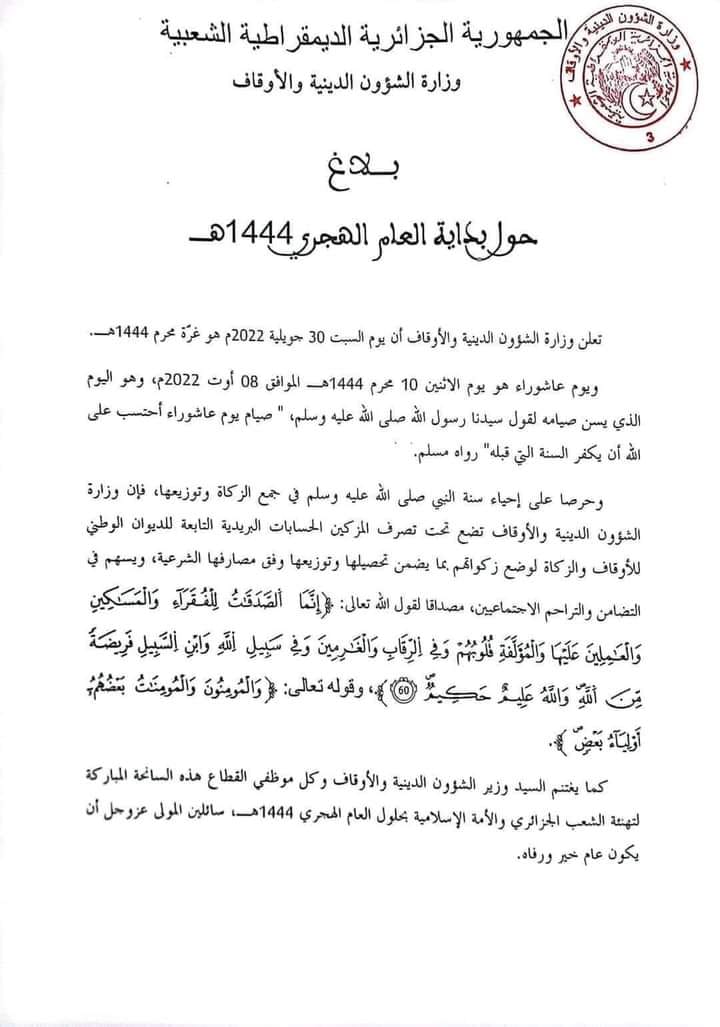 الجمهورية الجزائرية الديمقراطية الشعبية
وزارة الشؤون الدينية والأوقاف
وزارة الشؤون الدينية والأوقاف
الجمهورية الجزائرية الديمقراطية الشعبية
3
بـــلاغ
حول بداية العام الهجري 1444هـــ
تعلن وزارة الشؤون الدينية والأوقاف أن يوم السبت 30 جويلية 2022م هو غرّة محرم 1444هـــ.
ويوم عاشوراء هو يوم الاثنين 10 محرم 1444هـــ الموافق 08 أوت 2022م، وهو اليوم
الذي يسن صيامه لقول سيدنا رسول الله صلى الله عليه وسلم، " صيام يوم عاشوراء أحتسب على
الله أن يكفر السنة التي قبله" رواه مسلم.
وحرصا على إحياء سنة النبي صلى الله عليه وسلم في جمع الزكاة وتوزيعها، فإن وزارة
الشؤون الدينية والأوقاف تضع تحت تصرف المزكين الحسابات البريدية التابعة للديوان الوطني
للأوقاف والزكاة لوضع زكواتهم بما يضمن تحصيلها وتوزيعها وفق مصارفها الشرعية، ويسهم في
التضامن والتراحم الاجتماعيين، مصداقا لقول الله تعالى: ﴿إِنَّمَا اَ۬لصَّدَقَٰتُ لِلْفُقَرَآءِ وَالْمَسَٰكِينِ
وَالْعَٰمِلِينَ عَلَيْهَا وَالْمُؤَلَّفَةِ قُلُوبُهُمْ وَفِي اِ۬لرِّقَابِ وَالْغَٰرِمِينَ وَفِي سَبِيلِ اِ۬للَّهِ وَابْنِ اِ۬لسَّبِيلِ فَرِيضَةً
مِّنَ اَ۬للَّهِ وَاللَّهُ عَلِيمٌ حَكِيمٌ (60)﴾، وقوله تعالى: ﴿وَالْمُومِنُونَ وَالْمُومِنَٰتُ بَعْضُهُمُۥٓ
أَوْلِيَآءُ بَعْضٍ﴾.
كما يغتنم السيد وزير الشؤون الدينية والأوقاف وكل موظفي القطاع هذه السانحة المباركة
لتهنئة الشعب الجزائري والأمة الإسلامية بحلول العام الهجري 1444هـــ، سائلين المولى عزوجل أن
يكون عام خير ورفاه.